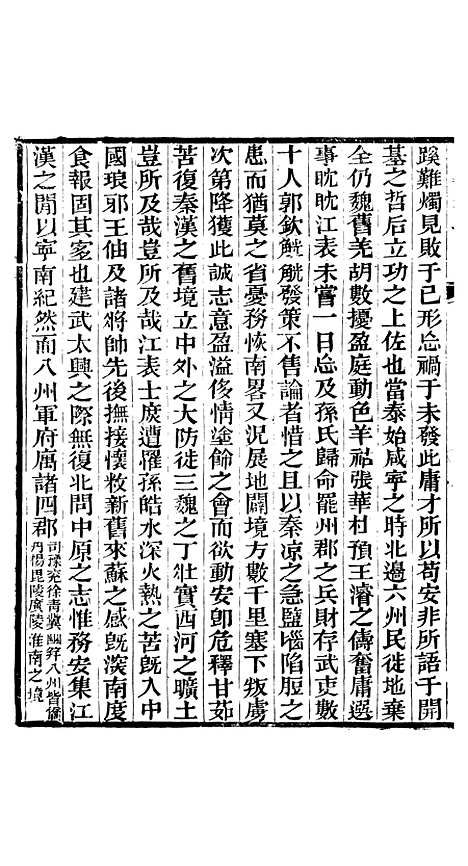 蹊難燭見敗于已形忘禍于未發此庸才所以苟安非所語于開
基之哲后立功之上佐也當泰始咸寧之時北邊六州民徙地棄
全仍魏舊羌胡數擾盈庭動色羊祜張華杜預王濬之儔奮庸選
事眈眈江表未嘗一日忘及孫氏歸命罷州郡之兵財存武吏數
十人郭欽觥觥發策不售論者惜之且以秦涼之急鹽𦛨陷脰之
患而猶莫之省憂務恢南畧又況展地闢境方數千里塞下叛虜
次第降獲此誠志意盈溢侈情塗飾之會而欲動安卽危釋甘茹
苦復秦漢之舊境立中外之大防徙三魏之丁壯實西河之曠土
豈所及哉豈所及哉江表士庶遭罹孫皓水深火熱之苦旣入中
國琅邪王伷及諸將帥先後撫接懷敉新舊來蘇之感旣浹南度
食報固其宐也建武太興之際無復北問中原之志惟務安集江
漢之閒以寧南紀然而八州軍府寓諸四郡司豫兗徐靑冀幽幷八州皆僑
丹楊毘陵廣陵淮南之境